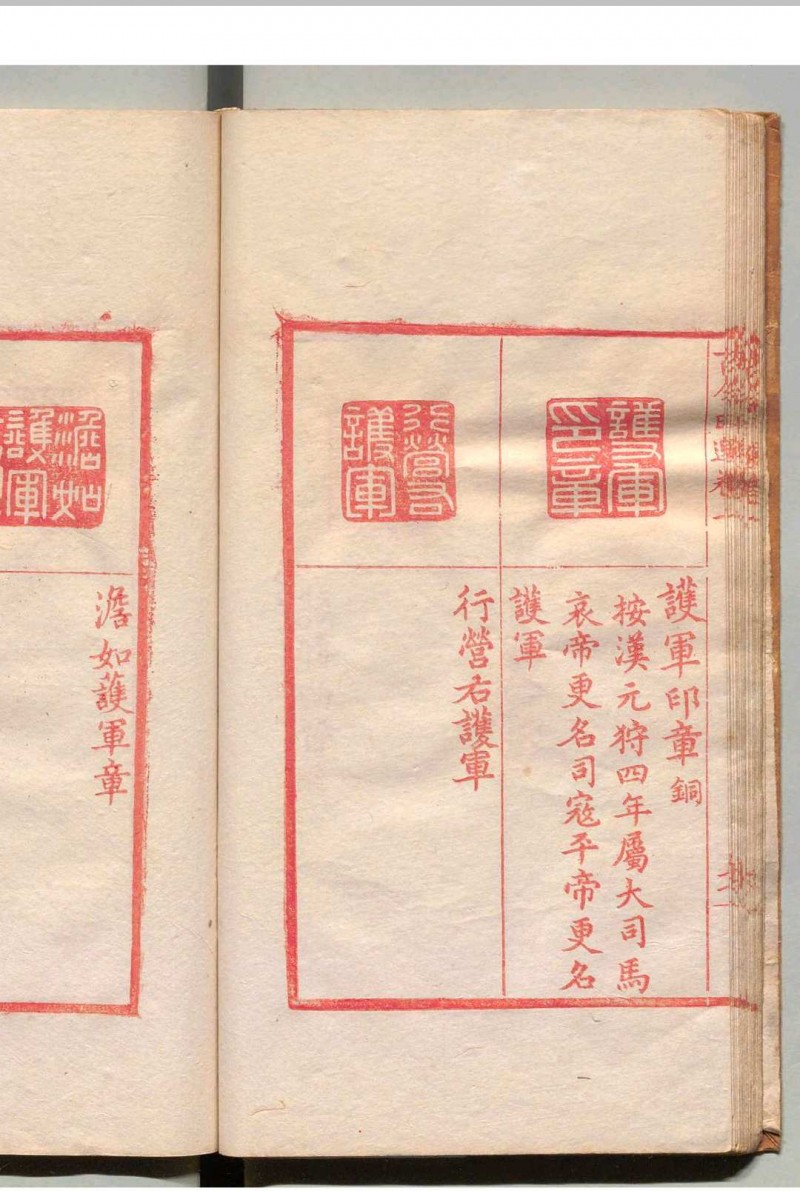 護軍印章
護軍印章 銅
按漢元狩四年屬大司馬
哀帝更名司寇平帝更名
護軍
行營右護軍
行營右護軍
澹如護軍章